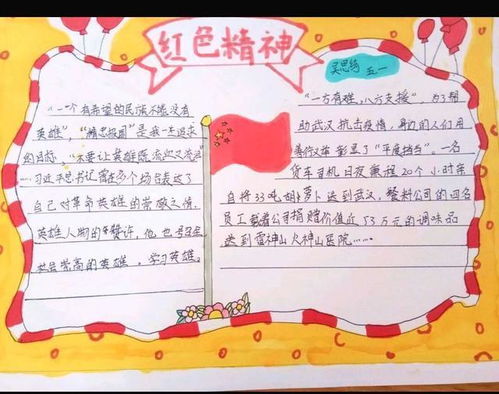 红色精神
吴思绮 五一
"一个有希望的民族不能没有
英雄" "精忠报国"是我一生追求
的目标,"不要让英雄既流血又流泪"
习近平总书记曾在多个场合表达了
自己对革命英雄的崇敬之情,
英雄人物的赞许,他也号召全
社会崇尚的英雄,学习英雄。
"一方有难,八方支援",为了帮
助武汉抗击疫情,身边的人们用
善行义举彰显了"平度担当"。一名
货车司机日夜兼程20个小时亲
自将33吨胡萝卜送到武汉,餐料公司的四名
员工载着公司捐赠价值近53万元的调味品
送到雷神山火神山医院……